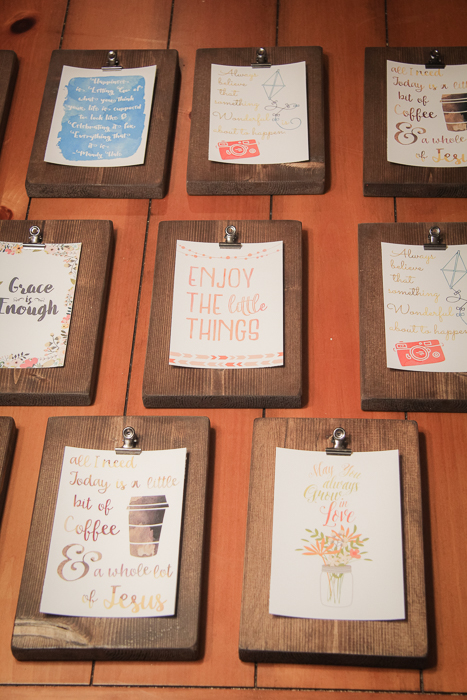 "Happiness
is "Letting Go" of
what you think
your life is supposed
to look like &
"Celebrating it for
"Everything that
it is."
Always
believe
that
something
Wonderful
about to happen
all I need
Today is a
bit of
Coffee
&
a whole
of Jesus
Grace
is
Enough
ENJOY
THE little
THINGS
Always
believe
that
something
Wonderful
about to happen
all I need
Today is a little
bit of
Coffee
&
a whole lot
of Jesus
May
always
Grow
in
Love